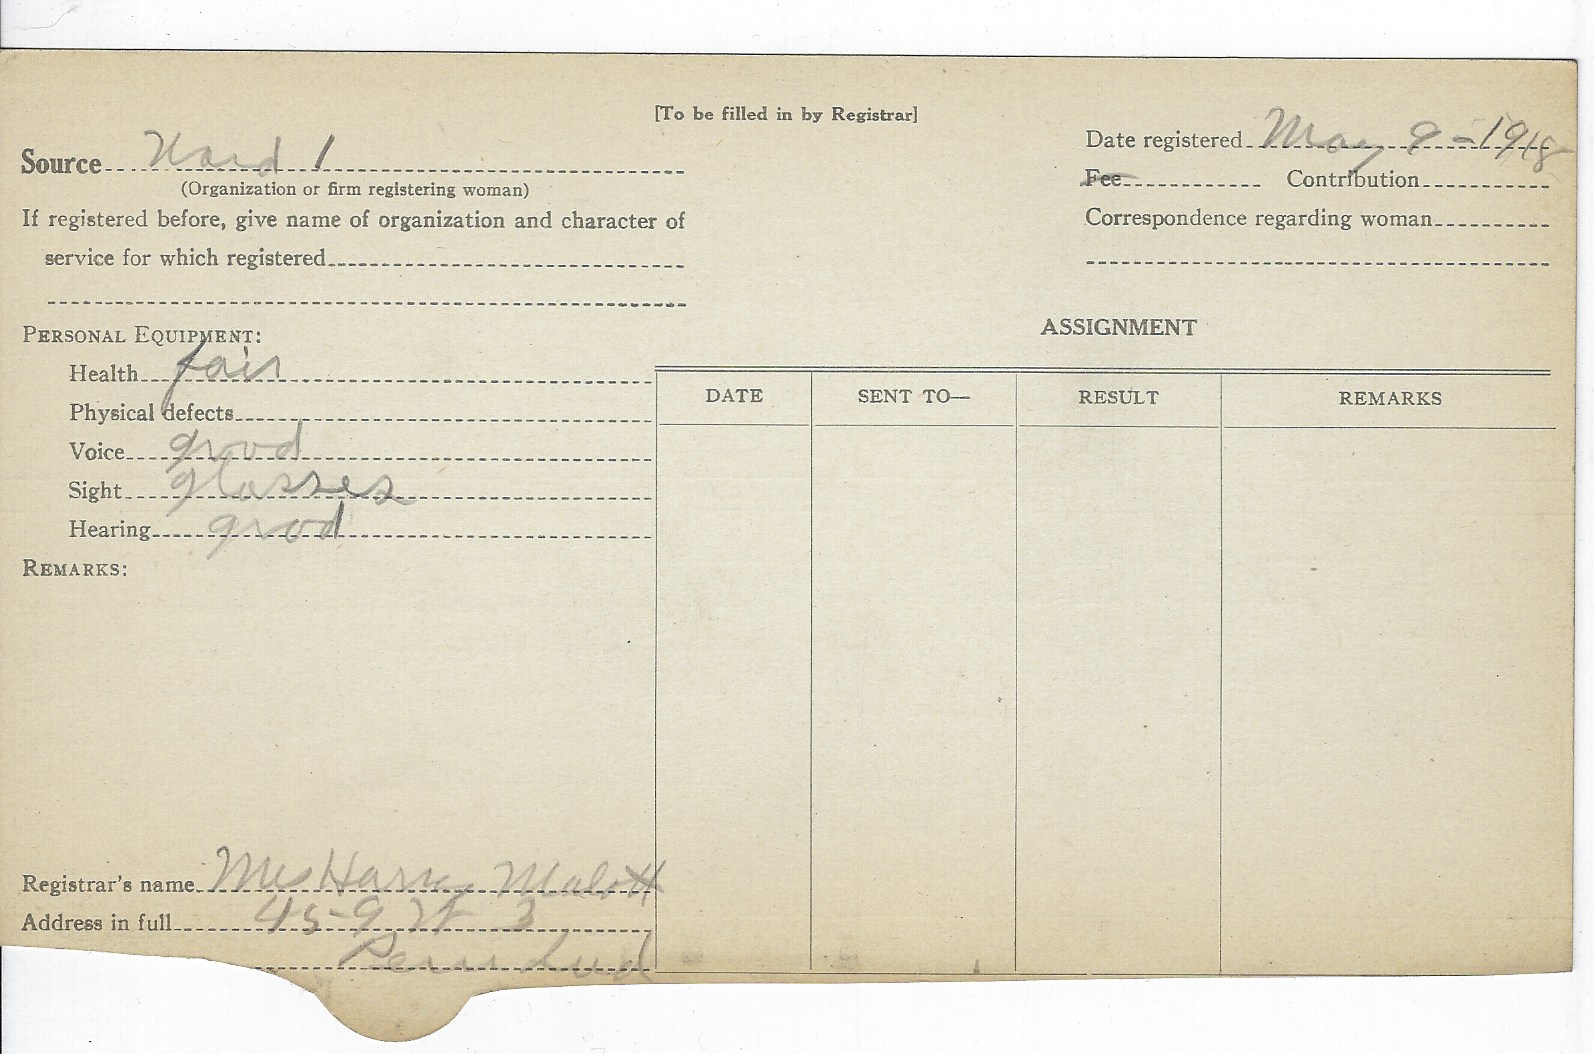 [To be filled in by Registrar]
Source Ward 1
(Organization or firm registering woman)
If registered before, give name of organization and character of
service for which registered
Date registered May 9-1918
Fee Contribution
Correspondence regarding woman
PERSONAL EQUIPMENT:
Health fair
Physical defects
Voice good
Sight glasses
Hearing good
REMARKS:
ASSIGNMENT
DATE SENT TO— RESULT REMARKS
Registrar's name Mrs Harry Malott
Address in full 3
Peru Ind